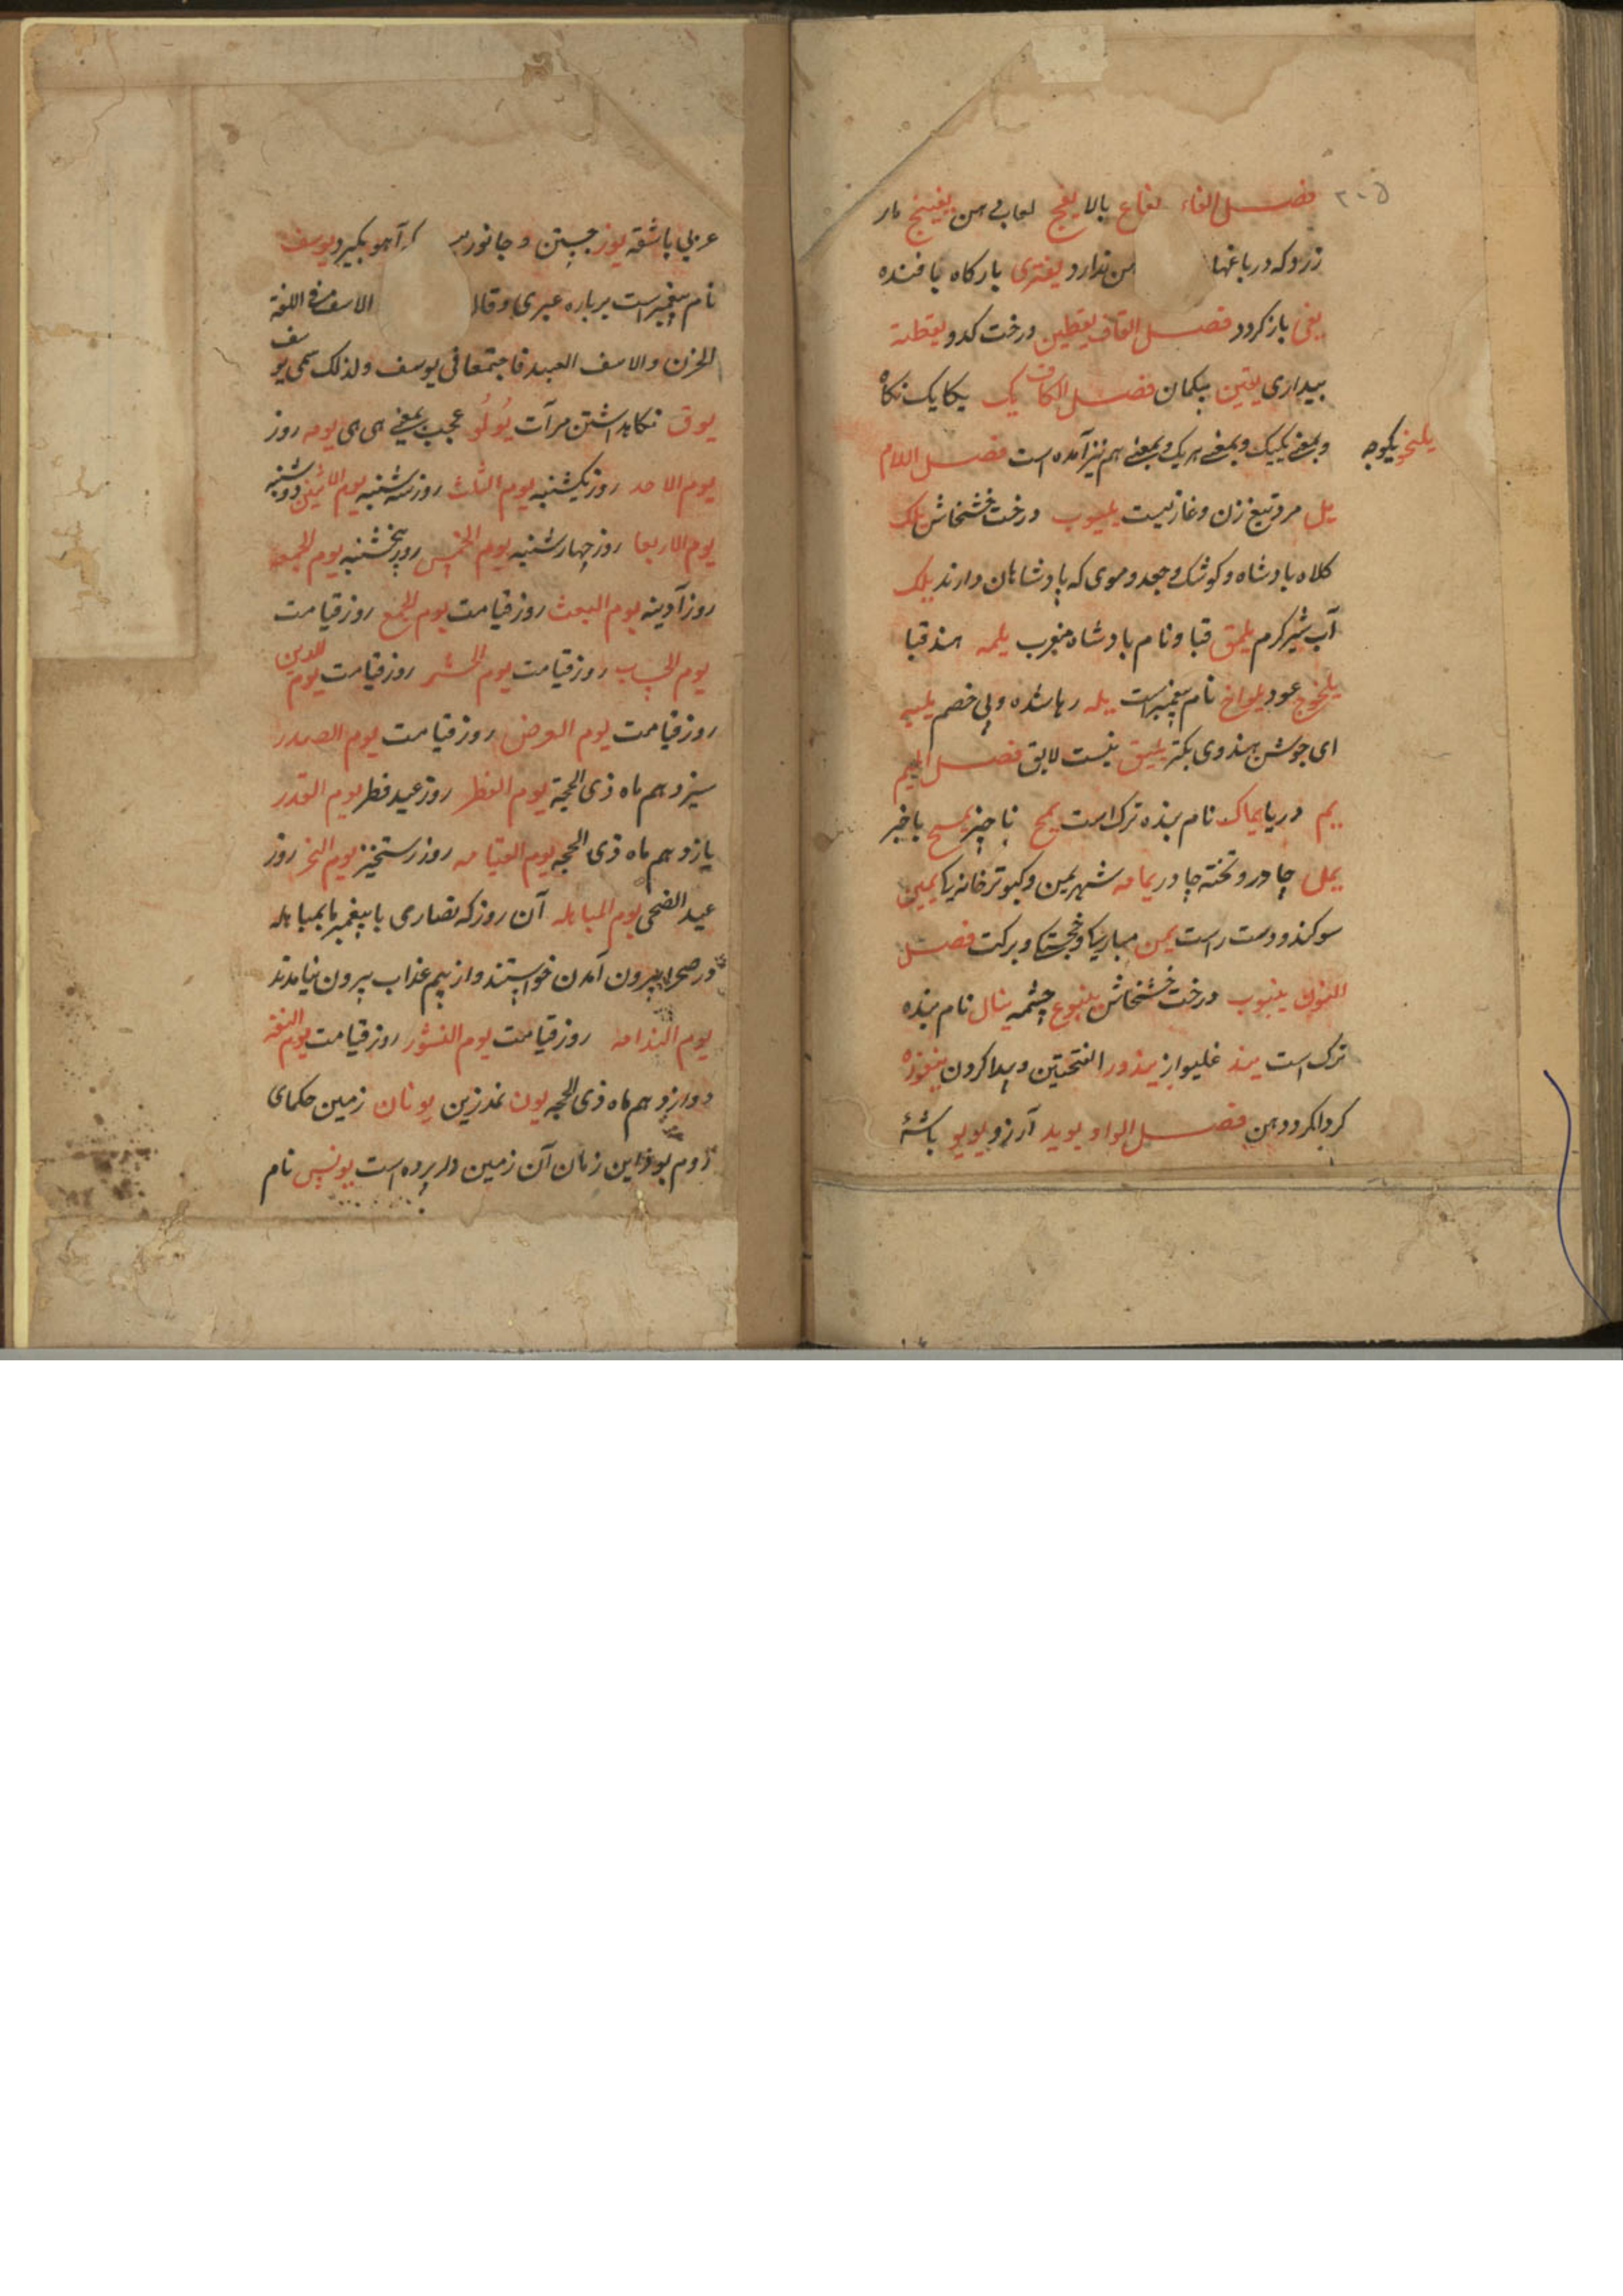 ۲۰۵
فصل الفاء یفاع بالا یفج لعاب دهن یفینج مار
زرد که در باغها من ندارد یفتری بارکاه بافنده
یفی باز کردد فصل القاف یقطین درخت کدو یقظة
بیداری یقین بیکمان فصل الکاف یک یکایک نکاه
وبمعنی یکیک وبمعنی هریک وبمعنی هم نیز آمده است فصل اللام
یکوجه
یل مرد تیغ زن وغازیست درخت خشخاش یلک
کلاه بادشاه وکوشک وجعد وموی که بادشاهان دارند یلک
آب شیر کرم یلمق قبا ونام بادشاه مغرب یلمه هند قبا
عود یلواخ نام پیغمبر است یله رها شده وبی خصم
ای جوشن هندوی بکتر یلیق نیست لایق فصل المیم
یم دریا یماک نام بنده ترک است یمح ناچیز باخبر
یمل چادر وتخته چادر یمامه شهر یمن وکبوتر خانه یمین
سوکند ودست راست یمن مبارکی وخجستکی وبرکت فصل
النون ینبوب درخت خشخاش ینبوع چشمه ینال نام بنده
ترک است غلیواز الفتحتین وپیدا کردن
کرداکرد دهن فصل الواو یوید آرزو یویو باشۀ
عربی باشقه یوز جستن و جانوریس که آهو بکیرد یوسف
نام پیغمبر است بر باره عبری وقال الاسف فی اللغة
الحزن والاسف العبید فاجتمعا فی یوسف ولذلک سمی یوسف
یوق نکاهداشتن مرآت یولو عجب بمعنی ای ای یومه روز
یوم الاحد روز یکشنبه یوم الثلث روز سه شنبه یوم الاثنین دوشنبه
یوم الاربعا روز چهارشنبه یوم الخمیس روز پنجشنبه یوم الجمعه
روز آدینه یوم البعث روز قیامت یوم الجمع روز قیامت
یوم الحساب روز قیامت یوم الحشر روز قیامت یوم الدین
روز قیامت یوم العرض روز قیامت یوم الصدر
سیزدهم ماه ذی الحجة یوم الفطر روز عید فطر یوم القدر
یازدهم ماه ذی الحجه یوم القیامه روز رستخیز یوم النحر روز
عید الضحی یوم المباهله آن روز که نصاری با پیغمبر ما بمباهله
در صحرا بیرون آمدن خواستند واز بیم عذاب بیرون نیامدند
یوم الندامه روز قیامت یوم النشور روز قیامت یوم النفر
دوازدهم ماه ذی الحجه یون نمد زین یونان زمین حکمای
روم بود این زمان آن زمین دریا برده است یونس نام